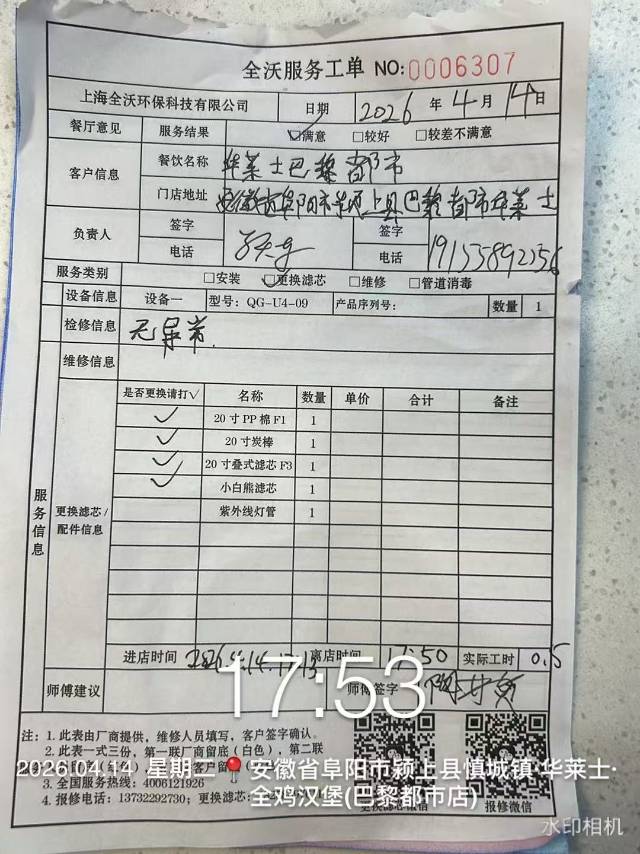 全沃服务工单 NO:0006307
上海全沃环保科技有限公司 日期 2026 年 4 月 14 日
餐厅意见 服务结果 ☑满意 □较好 □较差不满意
客户信息 餐饮名称 华莱士巴黎都市
门店地址 安徽省阜阳市颍上县巴黎都市华莱士
负责人 签字 签字
电话 电话 19155892256
服务类别 □安装 ☑更换滤芯 □维修 □管道消毒
设备信息 设备一 型号: QG-U4-09 产品序列号: 数量 1
检修信息 无异常.
维修信息
服务信息 更换滤芯/配件信息
是否更换请打√ 名称 数量 单价 合计 备注
✓ 20寸PP棉F1 1
✓ 20寸炭棒 1
✓ 20寸叠式滤芯F3 1
✓ 小白熊滤芯 1
紫外线灯管 1
进店时间 2026.4.14.17:13 离店时间 17:50 实际工时 0.5
师傅建议 师傅签字
17:53
注: 1. 此表由厂商提供，维修人员填写，客户签字确认。
2. 此表一式三份，第一联厂商留底(白色)，第二联
客户留
3. 全国服务热线: 4006121926
4. 报修电话: 13732292730; 更换滤芯:
更换滤芯微信 报修微信
2026.04.14 星期二 安徽省阜阳市颍上县慎城镇·华莱士·
全鸡汉堡(巴黎都市店)
水印相机